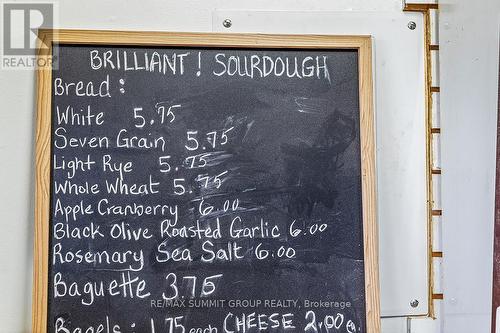 REALTOR®
BRILLIANT ! SOURDOUGH
BREAD :
WHITE 5.75
SEVEN GRAIN 5.75
LIGHT RYE 5.75
WHOLE WHEAT 5.75
APPLE CRANBERRY 6.00
BLACK OLIVE ROASTED GARLIC 6.00
ROSEMARY SEA SALT 6.00
BAGUETTE 3.75
RE/MAX SUMMIT GROUP REALTY, Brokerage
BAGELS : 1.75 each CHEESE 2.00